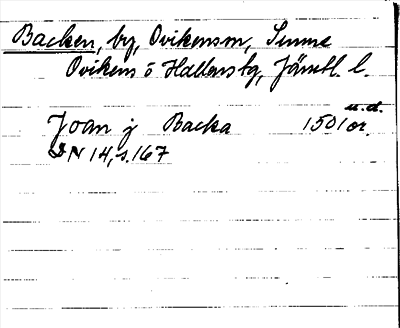 Backen, by, Ovikensm, Sunne
Ovikens o Hallens tg, Jämtl. l.
u.d.
Joan j Backa 1501 or.
DN 14, s. 167